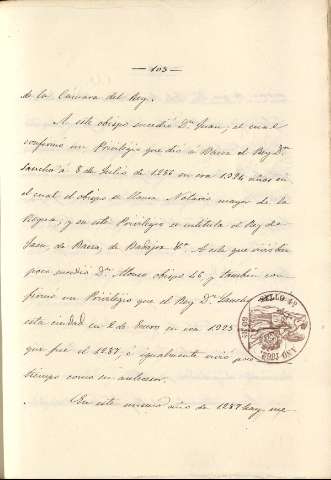 — 103 —
de la Cámara del Rey.
A este obispo sucedió Dn. Juan; el cual
confirmó un Privilegio que dió a Baeza el Rey Dn.
Sancho á 8 de Julio de 1286 en era 1324 años en
el cual el obispo se llama Notario mayor de la
; y en este Privilegio se intitula el Rey de
Jaen, de Baeza, de Badajoz &a. A este que vivió
poco sucedió Dn. Alonso obispo 46 y tambien con-
firmó un Privilegio que el Rey Dn. Sancho
esta ciudad en 2 de Enero en era 1325
que fué el 1287, é igualmente vivió poco
tiempo como su antecesor.
En este mismo año de 1287 hay me-
SELLO 4º
AÑO 1883